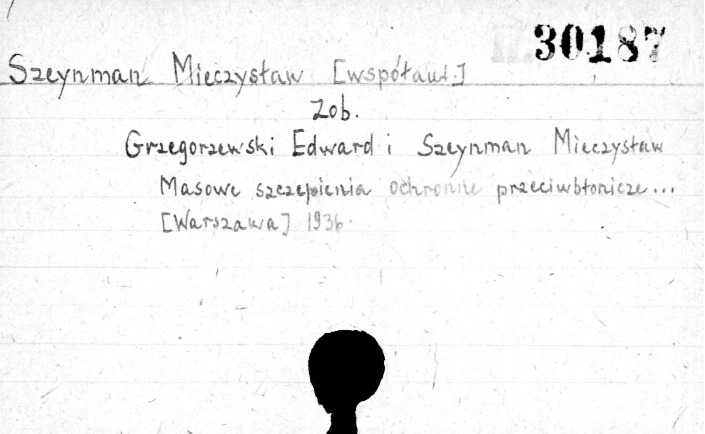 30187
Szejnman Mieczysław [współaut.]
Zob.
Grzegorzewski Edward i Szejnman Mieczysław
Masowe szczepienia ochronne przeciwbłonicze...
[Warszawa] 1936.